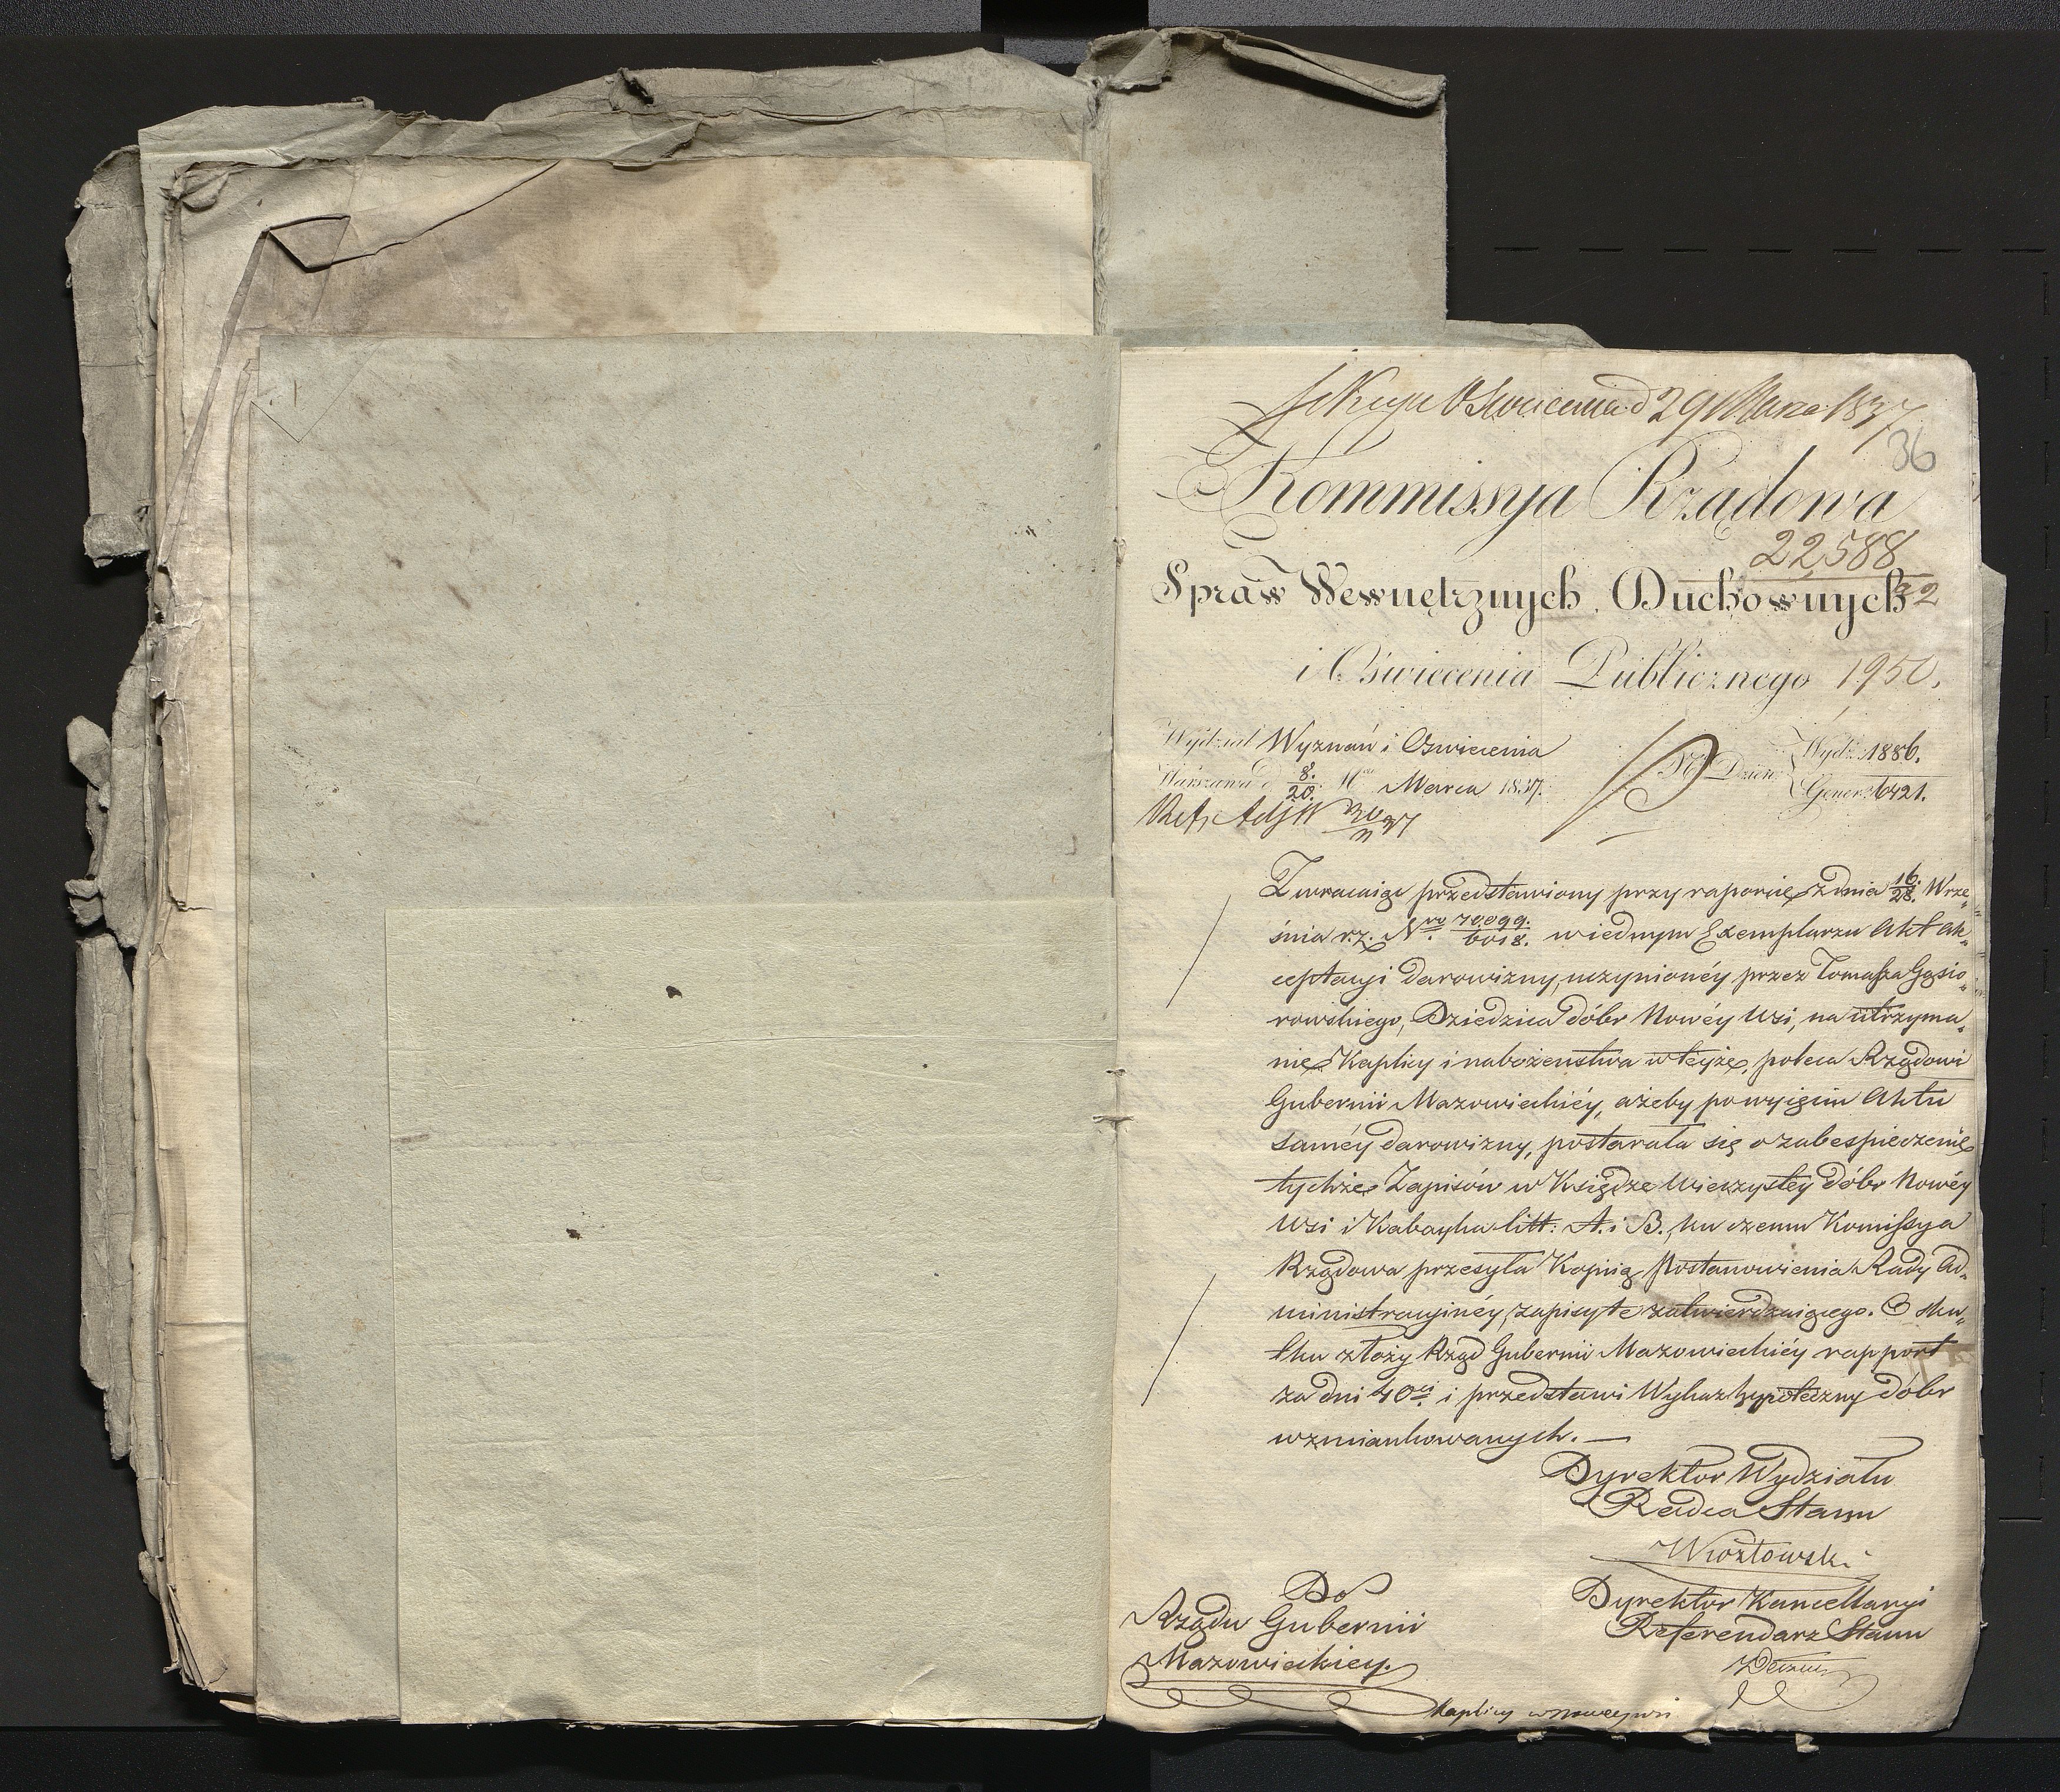 Sekcya Oświecenia d 29 Marca 1837
36
Kommissya Rządowa
22588
Spraw Wewnętrznych, Duchownych
i Oświecenia Publicznego 1950.
Wydział Wyznań i Oświecenia
Warszawa d 8./20. Mca Marca 1837.
No Dzien: Wydz: 1886.
Gener: 6421.
Zwracaiąc przedstawiony przy raporcie z dnia 16./28. Wrze„
śnia r.z. Nro 70099./6018. w iednym Exemplarzu Akt ak„
ceptacyi darowizny, uczynionéy przez Tomasza Gąsio„
rowskiego, Dziedzica dóbr Nowéy Wsi, na utrzyma„
nie Kaplicy i nabożeństwa w teyże, poleca Rządowi
Gubernii Mazowieckiéy, ażeby po wyięciu Aktu
saméy darowizny, postarała się o zabespieczenie
tychże Zapisów w Księdze Wieczystéy dóbr Nowéy
Wsi i Kabacyka litt: A. i B., ku czemu Komissya
Rządowa przesyła Kopiią Postanowienia Rady Ad„
ministracyinéy, zapisy te zatwierdzaiącego. O sku„
tku złoży Rząd Gubernii Mazowieckiéy rapport
za dni 40ci i przedstawi Wykaz hypoteczny dóbr
wzmiankowanych. —
Dyrektor Wydziału
Radca Stanu
Do
Dyrektor Kancellaryi
Rządu Gubernii
Referendarz Stanu
Mazowieckiey.
Kaplicy w Nowey wsi